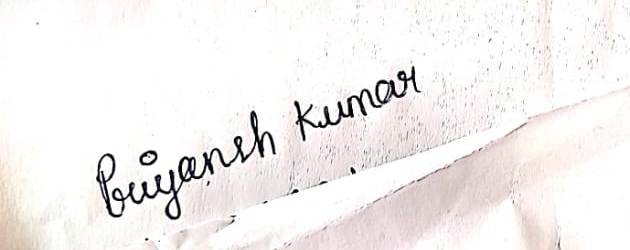 Priyansh Kumar